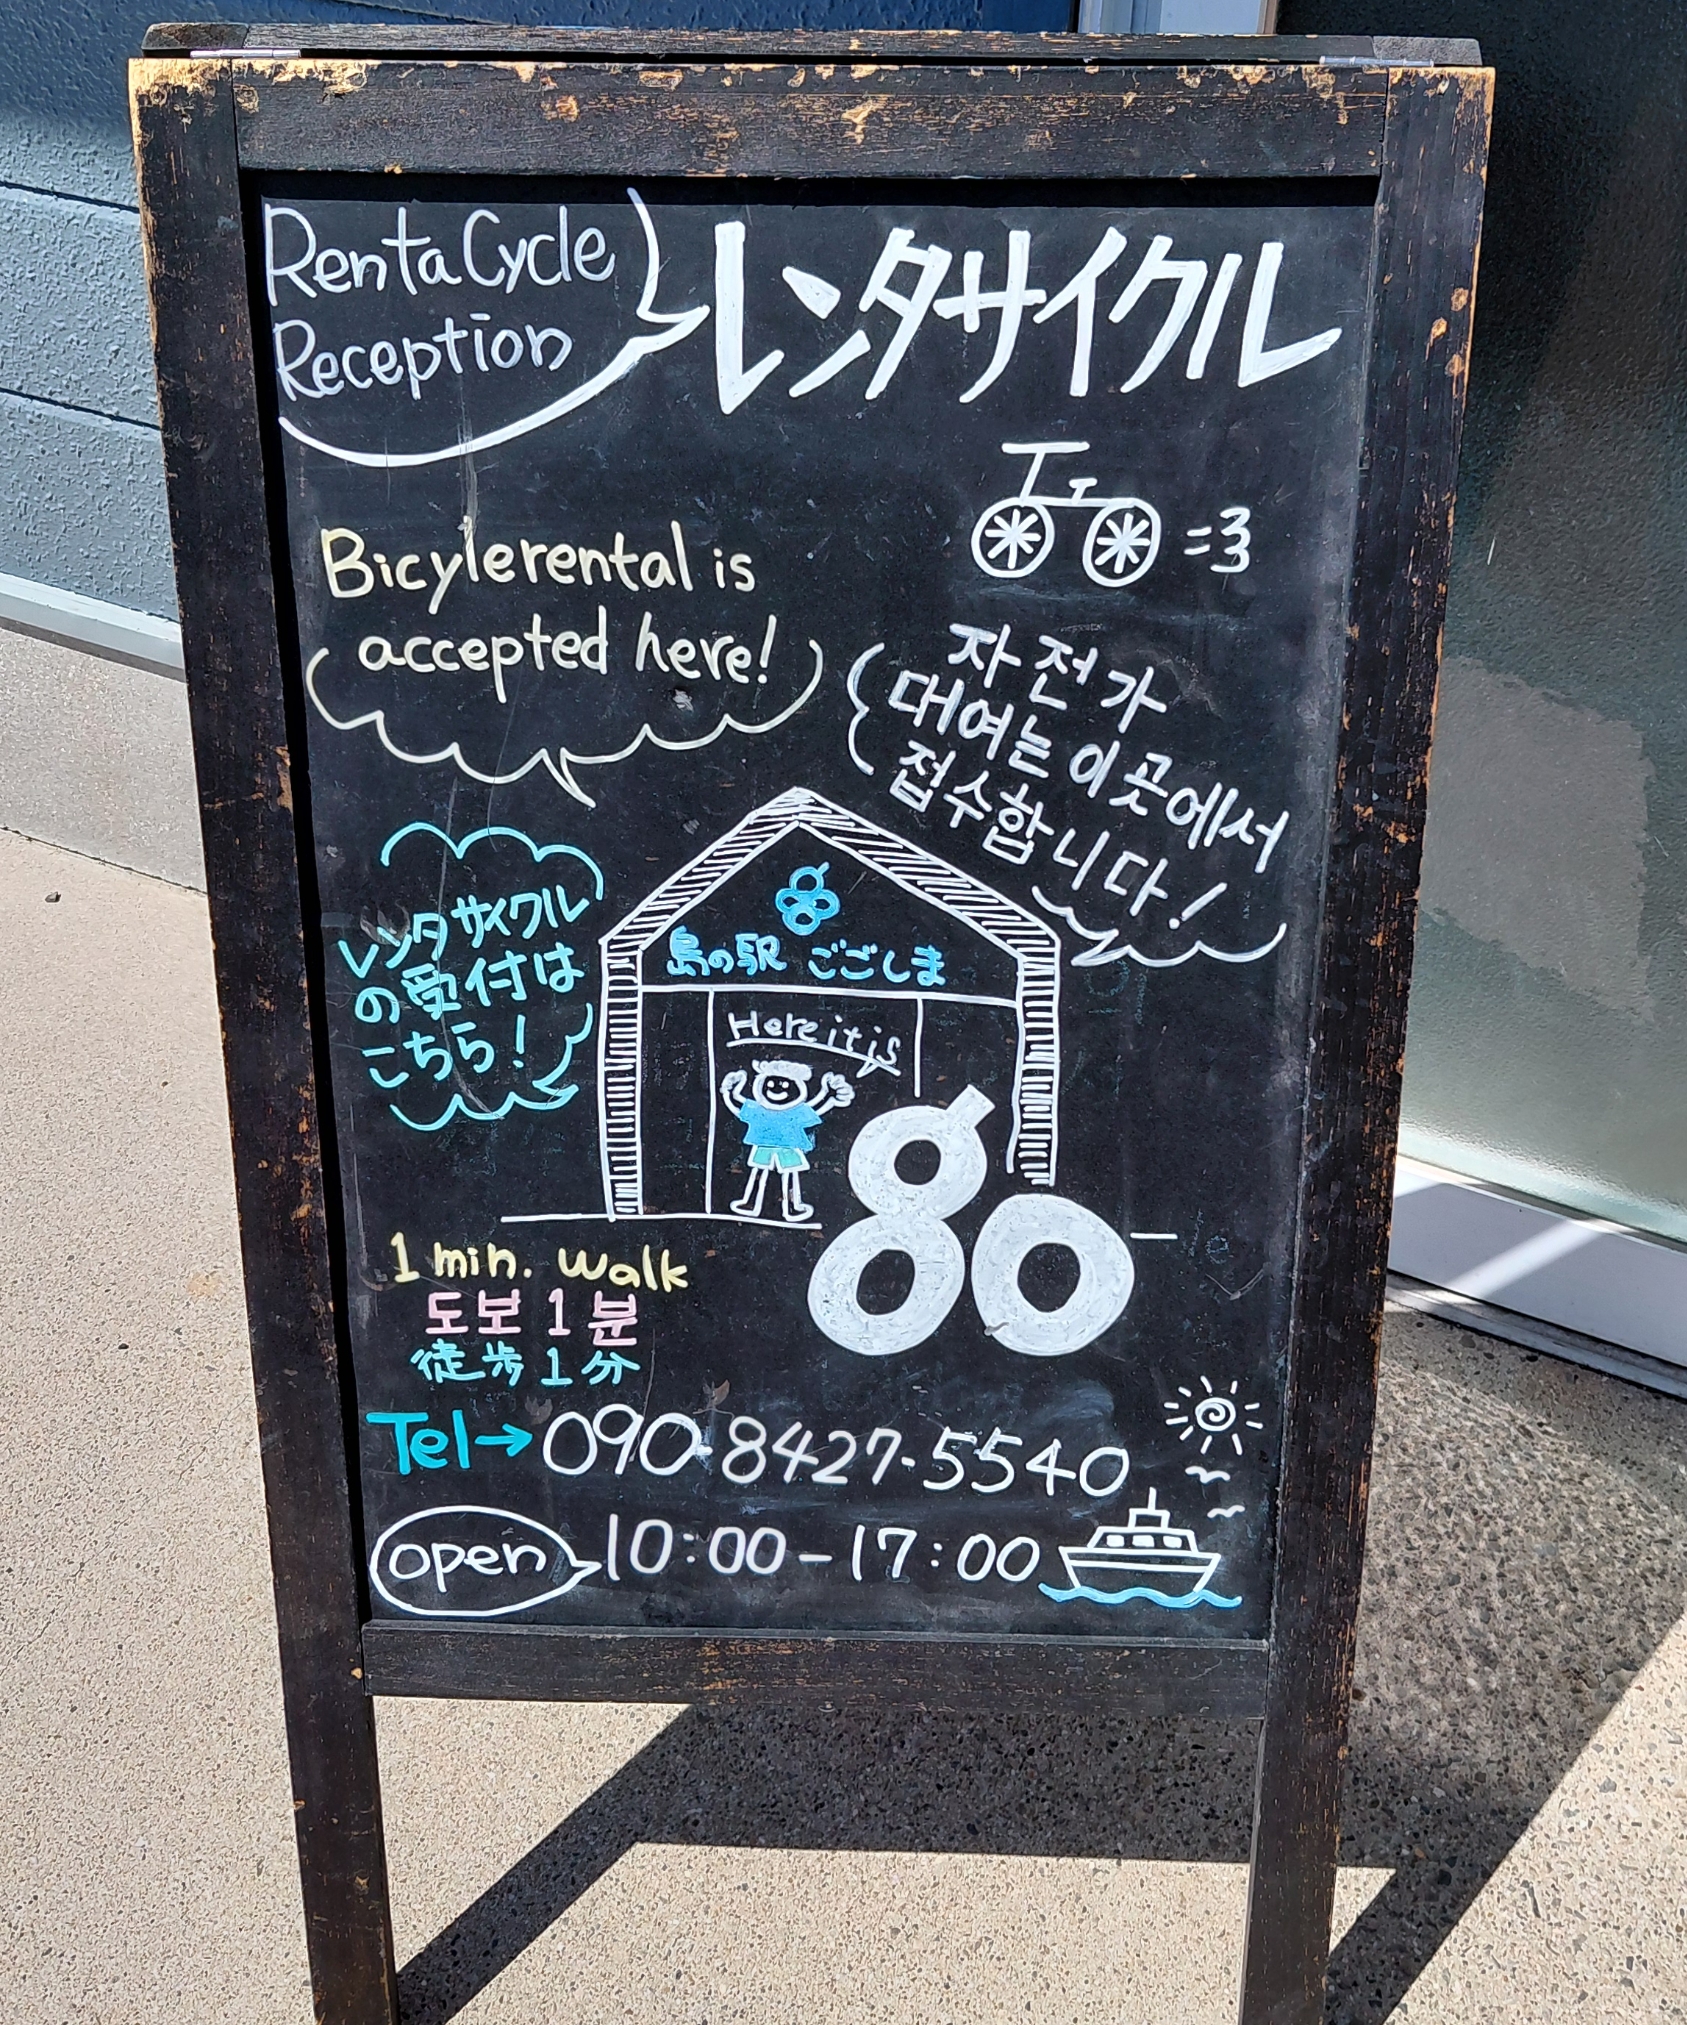 Renta Cycle
Reception
レンタサイクル
Bicylerental is
accepted here!
자전가
대여는 이곳에서
접수합니다!
レンタサイクル
の受付は
こちら!
島の駅 ごごしま
Here it is
1 min. walk
도보 1분
徒歩1分
Tel→090-8427-5540
open 10:00-17:00